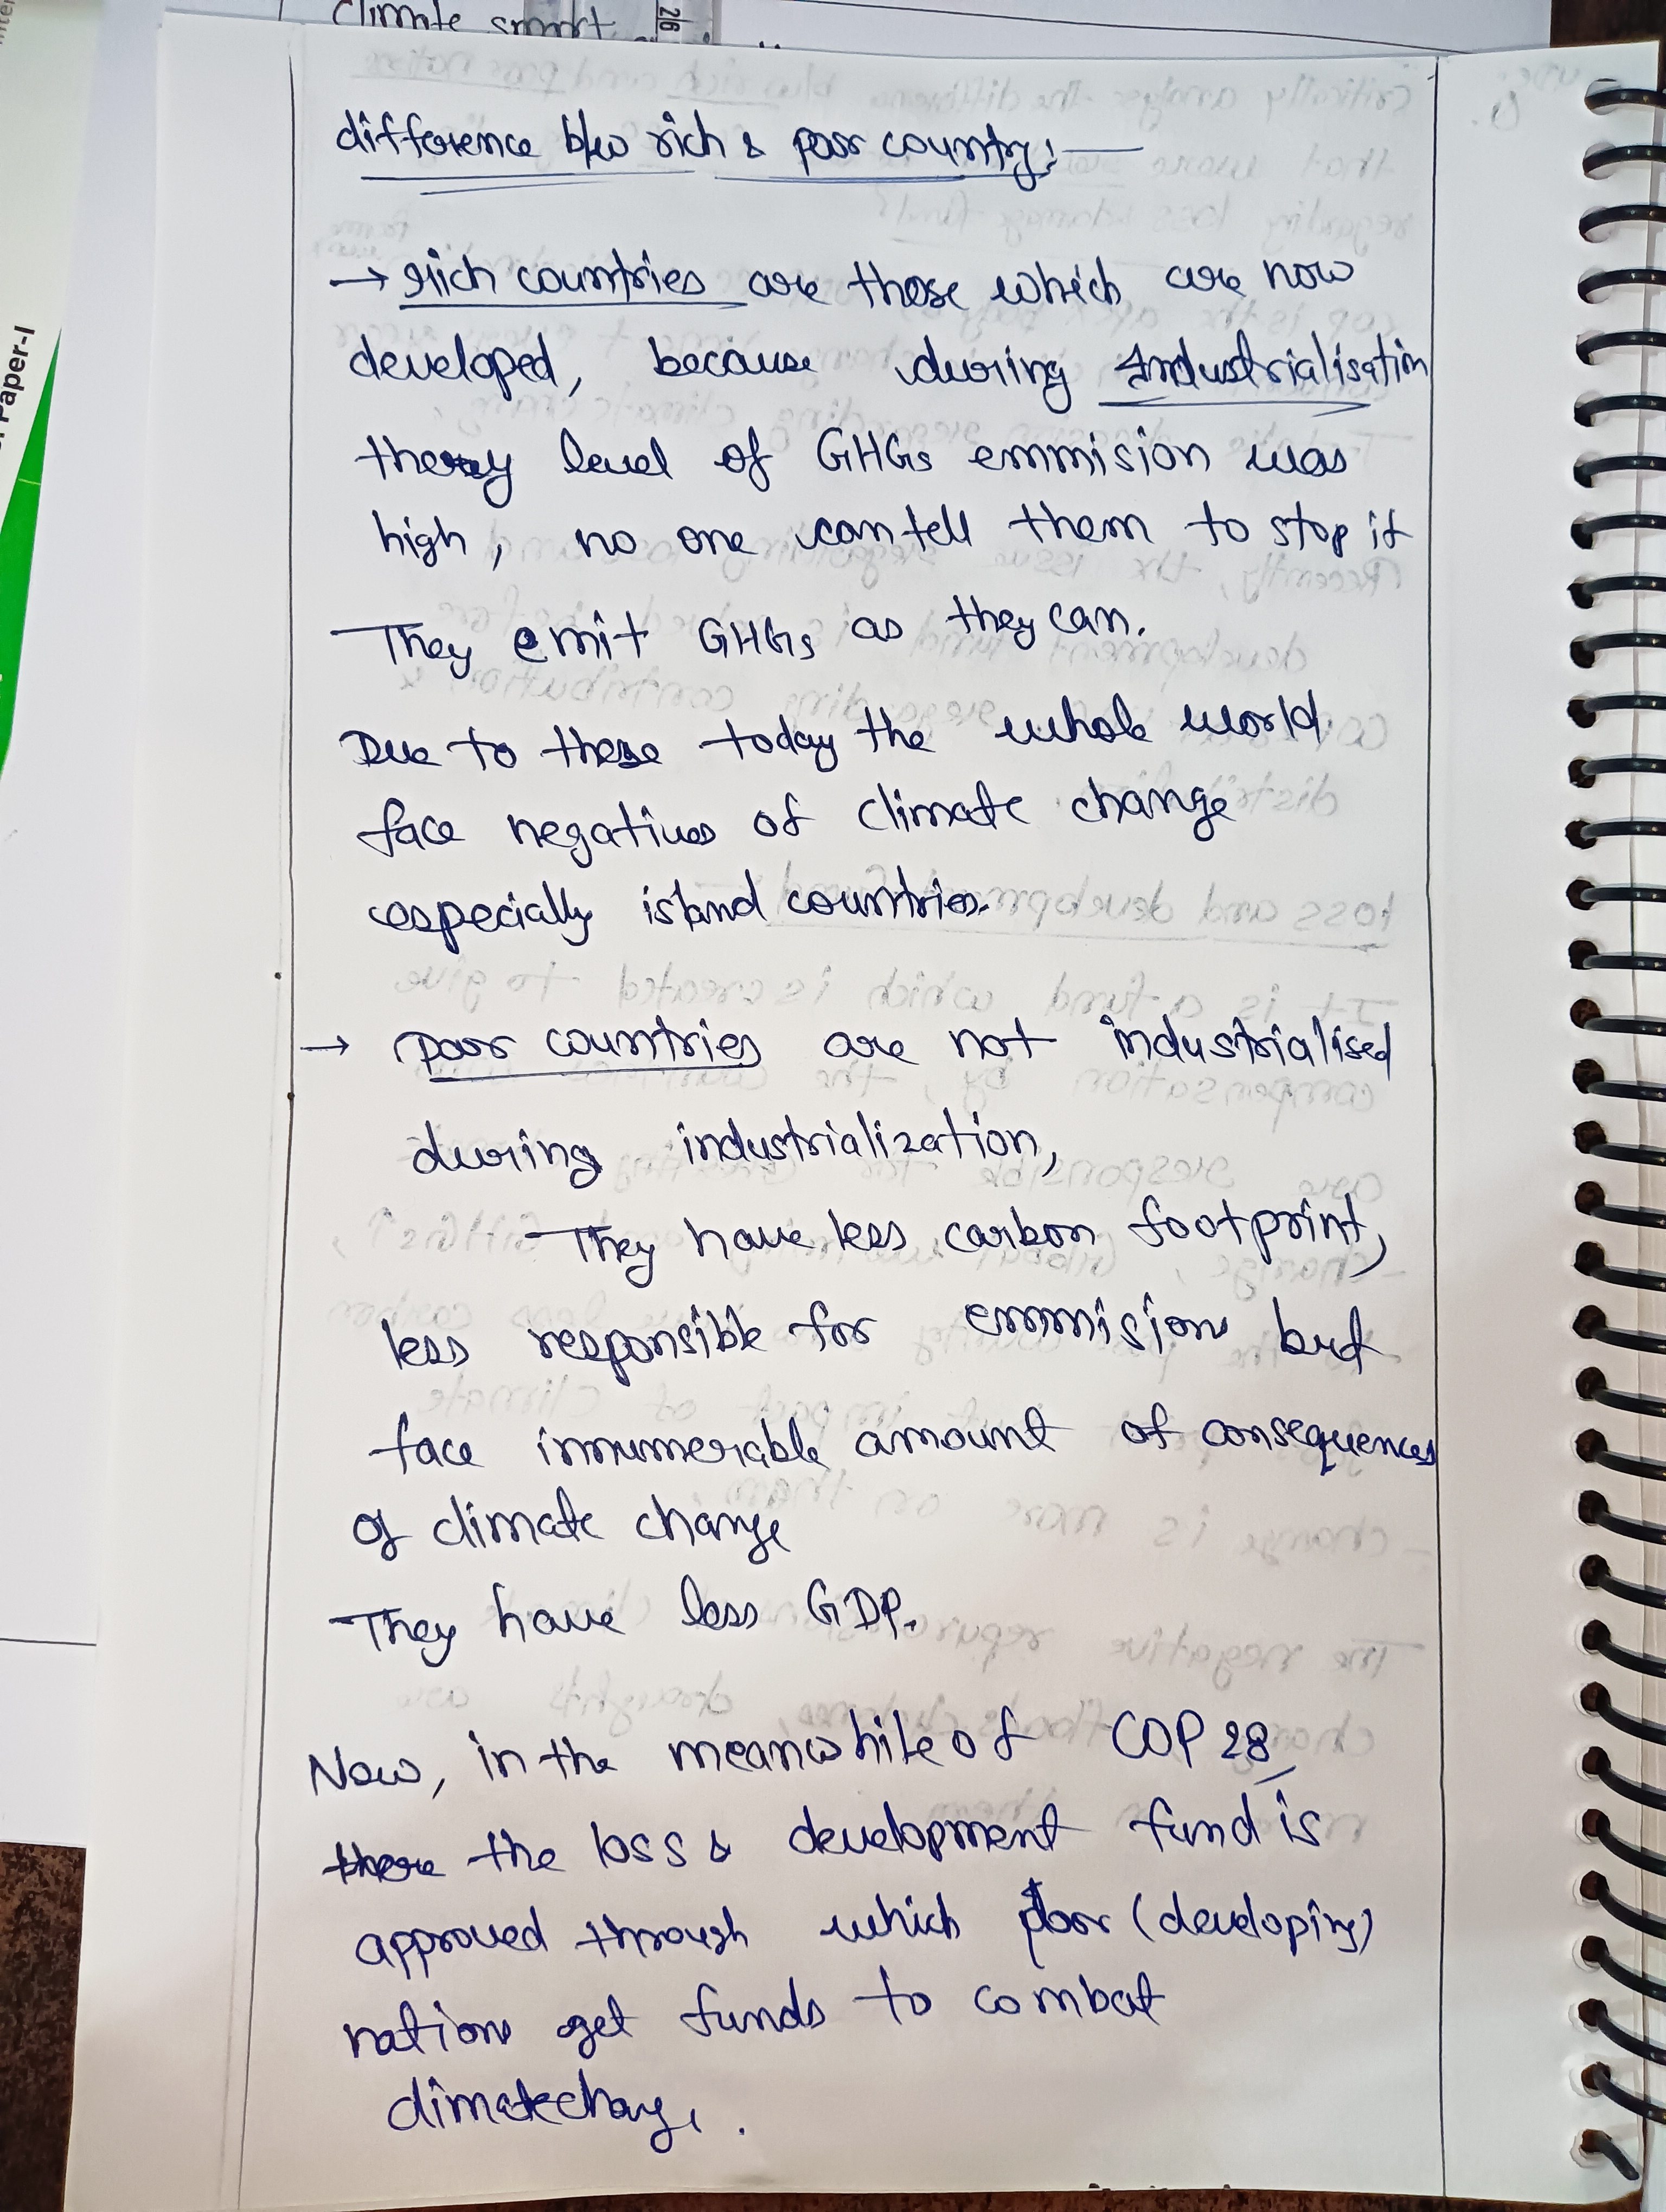 Climate smart
26
Paper-I
difference b/w rich & poor country:—
→ rich countries are those which are now
developed, because during Industrialisation
they level of GHGs emmision was
high, no one can tell them to stop it
They emit GHGs as they can.
Due to these today the whole world
face negatives of climate change
especially island countries.
→ poor countries are not industrialised
during industrialization,
They have less carbon footprint,
less responsible for emmisions but
face innumerable amount of consequences
of climate change
They have less GDP.
Now, in the meanwhile of COP 28
there the loss & development fund is
approved through which poor (developing)
nations get funds to combat
climate change.